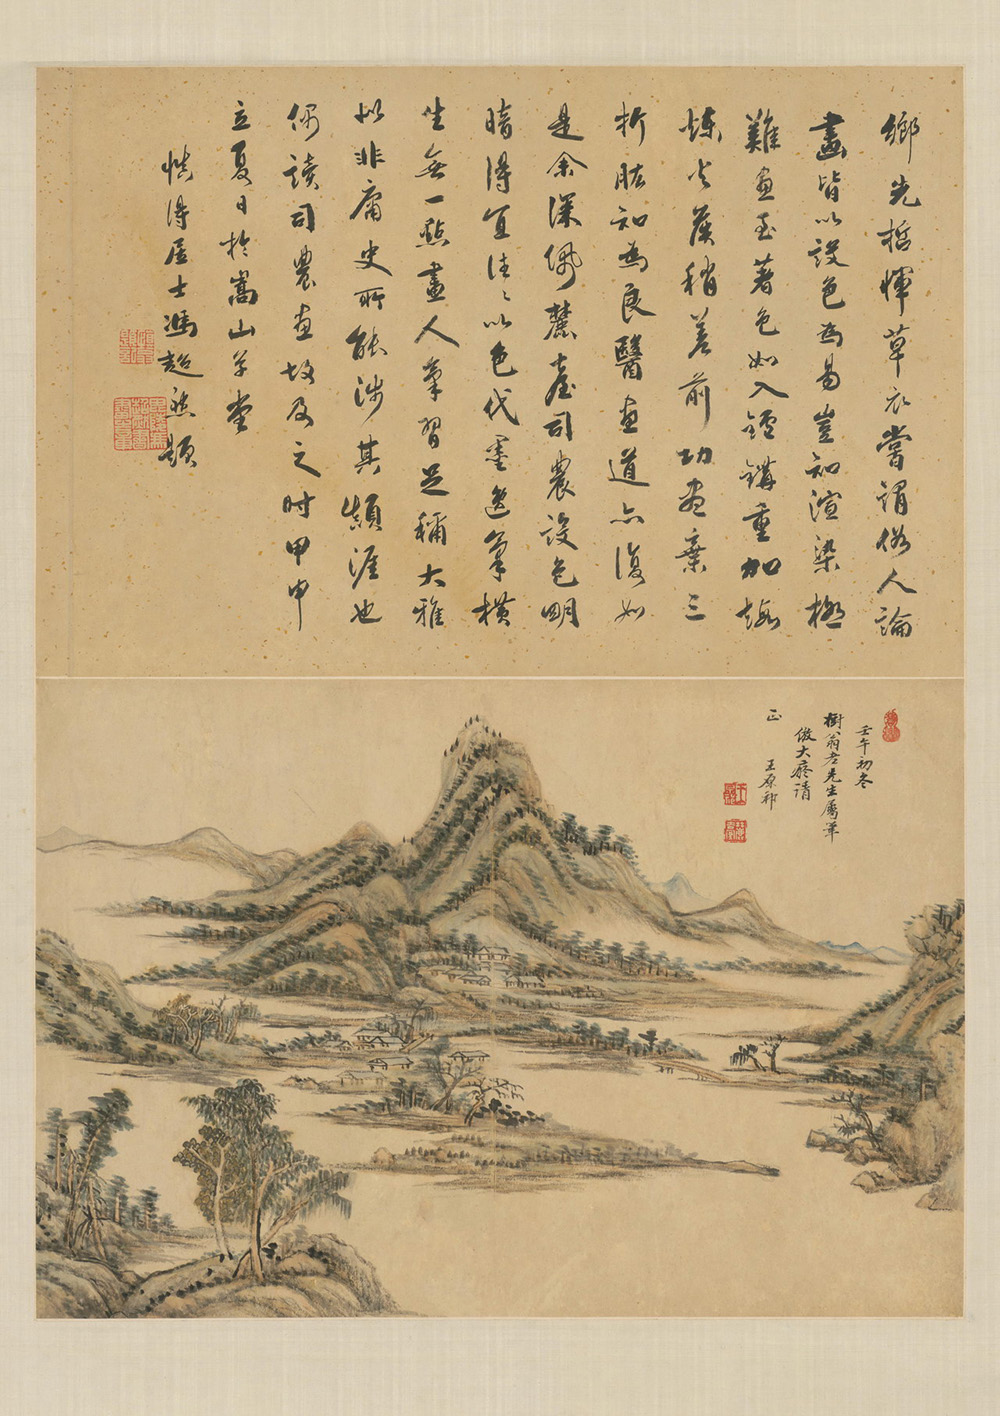 鄉先哲惲草衣嘗謂俗人論
畫皆以設色為易豈知渲染極
難畫至著色如入鑪鞲重加煅
煉火候稍差前功盡棄三
折肱知為良醫畫道亦復如
是余深佩麓臺司農設色明
暗得宜往〻以色代墨逸筆橫
生無一點畫人筆習足稱大雅
似非庸史所能涉其顛涯也
偶讀司農畫故及之時甲申
立夏日於嵩山草堂
慎得居士馮超然題
壬午初冬
樹翁老先生屬筆
倣大癡請
正 王原祁